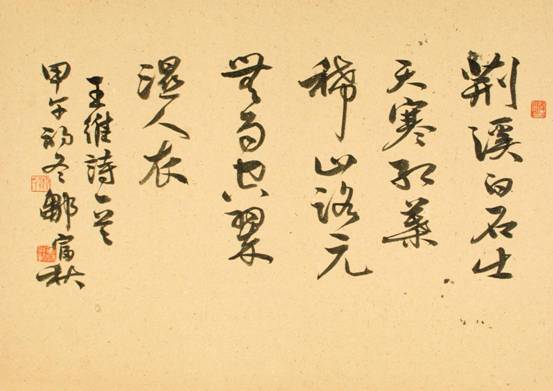 荆溪白石出
天寒红葉
稀山路元
無雨空翠
濕人衣
王維詩一首
甲午初冬鄒富秋